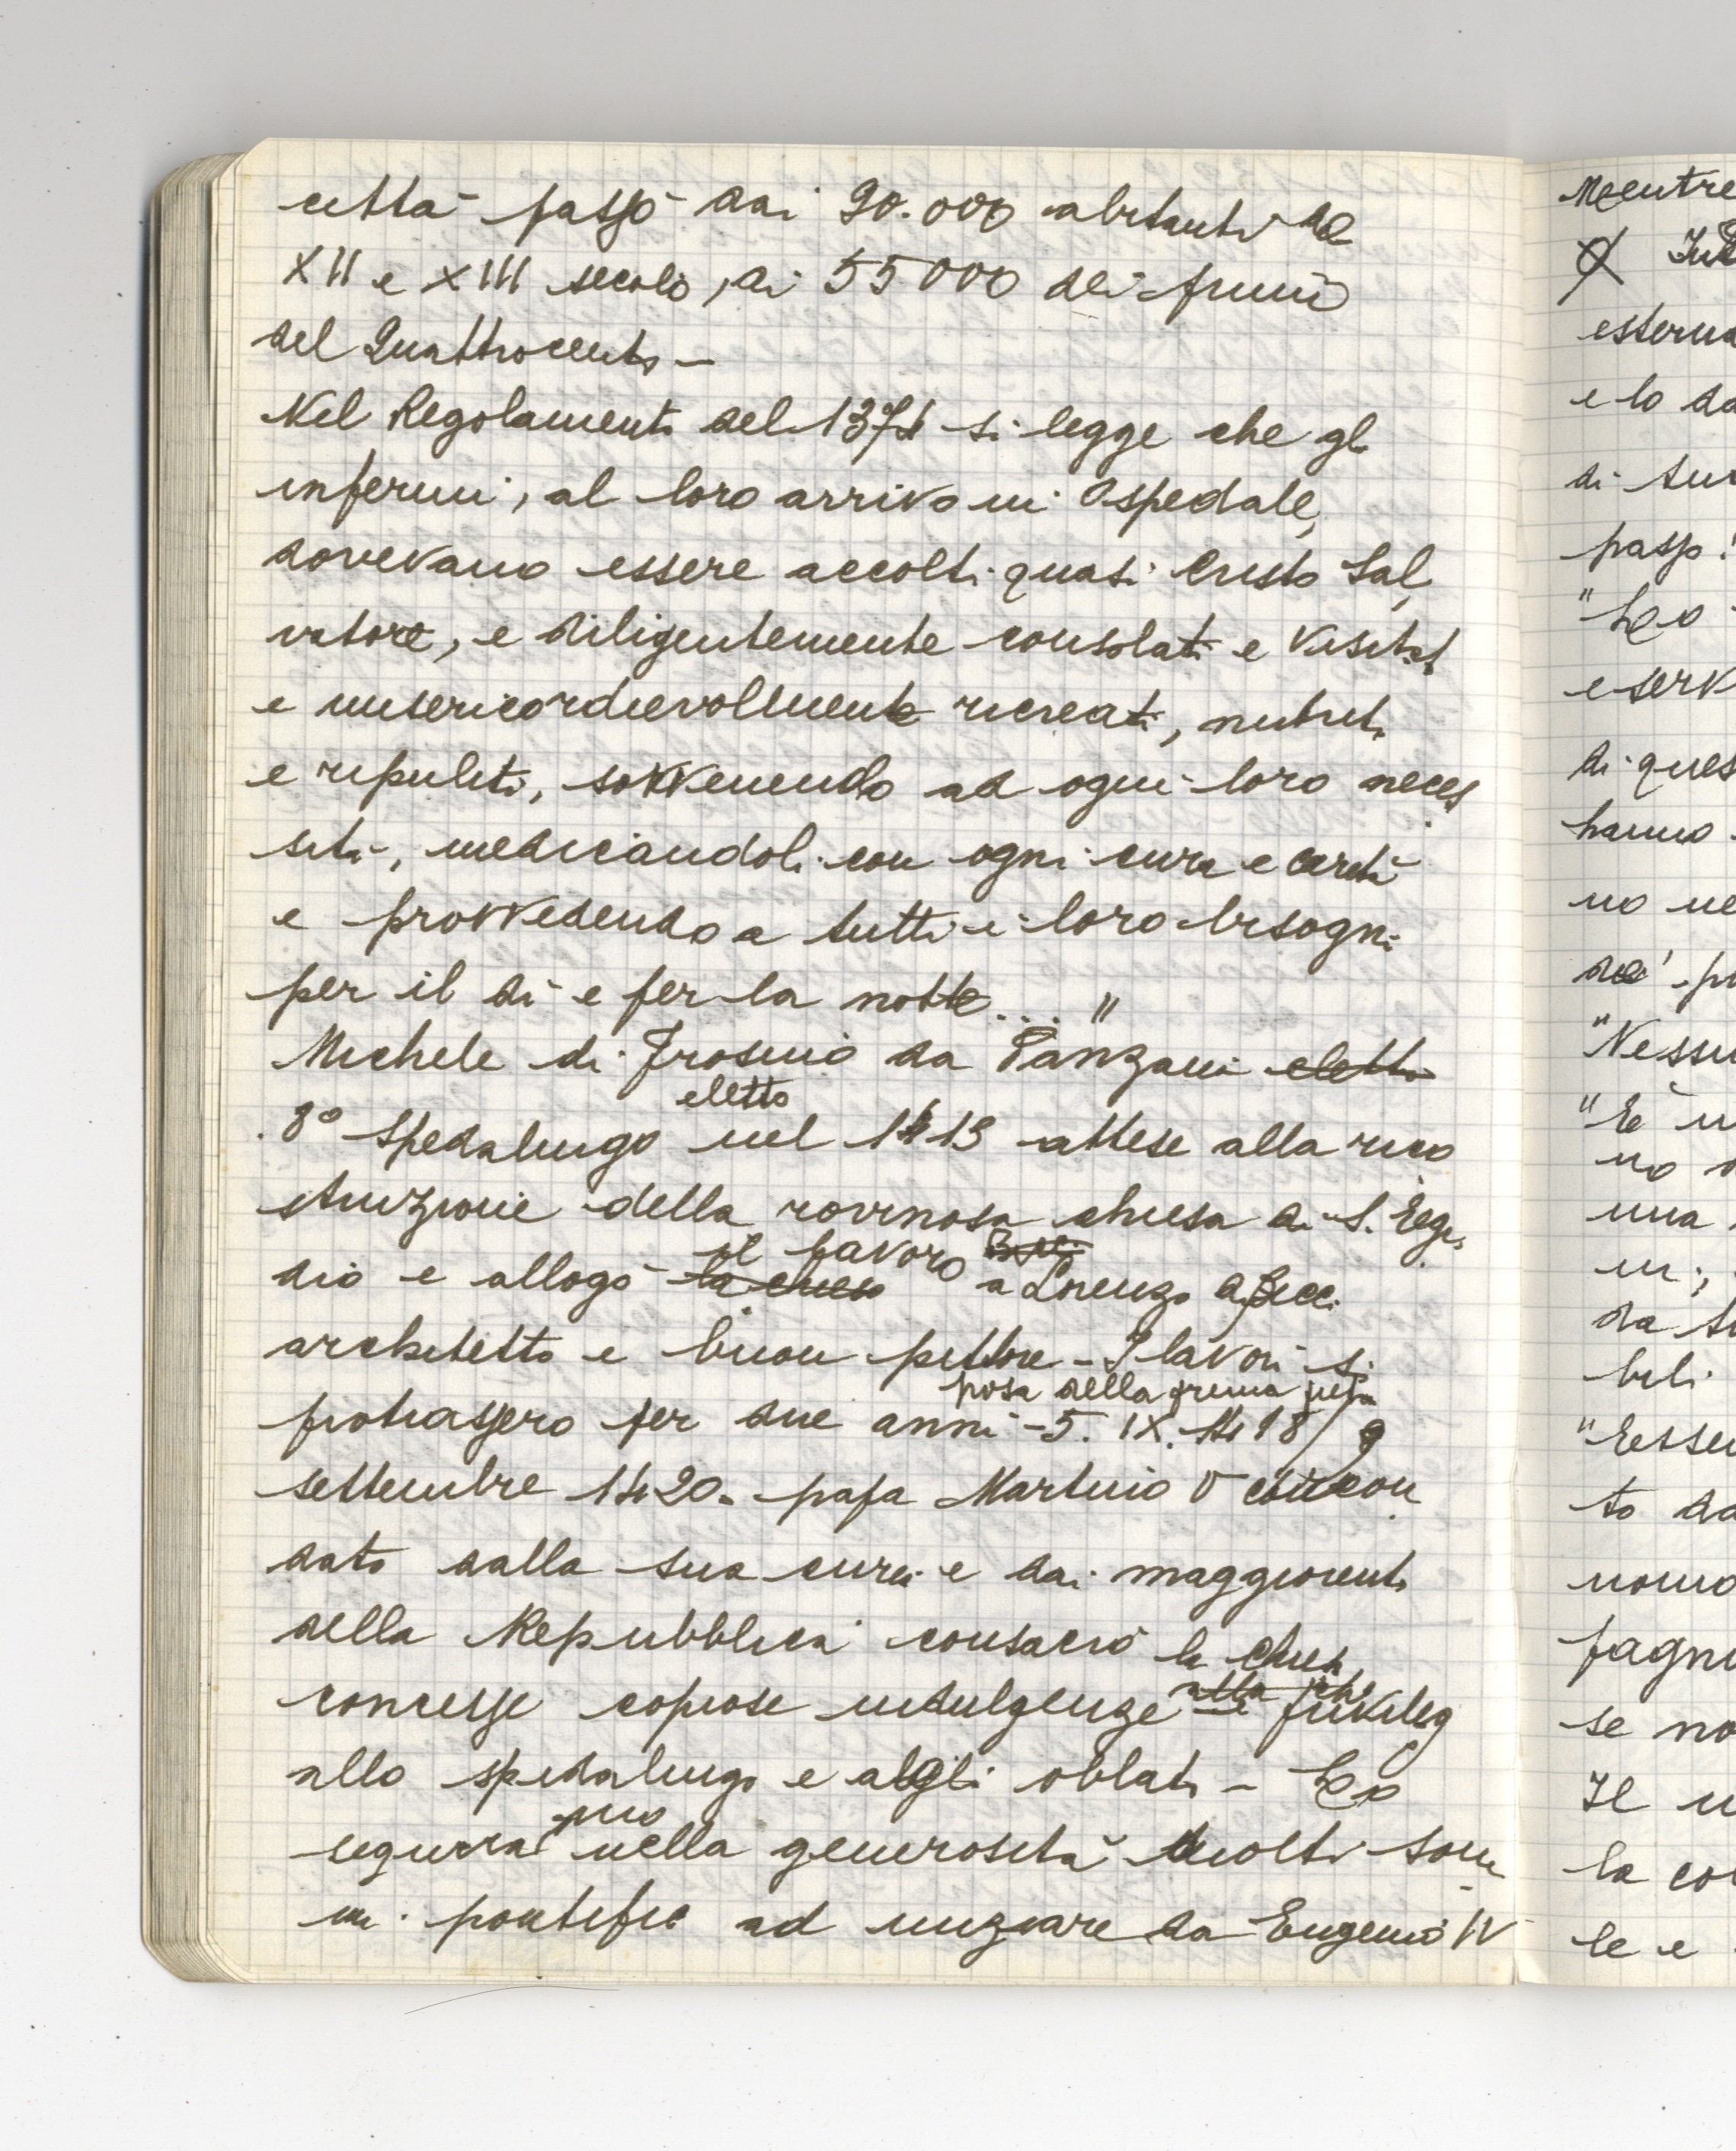 città passò dai 90.000 abitanti del
XII e XIII secolo, ai 55000 dei primi
del Quattrocento –
Nel Regolamento del 1374 si legge che gl
infermi, al loro arrivo in Ospedale,
dovevano essere accolti quasi Cristo Sal
vatore, e diligentemente consolati e visitati
e misericordievolmente ricreati, nutriti
e ripuliti, sovvenendo ad ogni loro neces
sità, medicandoli con ogni cura e carità
e provvedendo a tutti i loro bisogni
per il dì e per la notte... "
Michele di Frosino da Panzani eletto
eletto
8° Spedalingo nel 1413 attese alla rico
struzione della rovinosa chiesa di S. Egi
il lavoro
dio e allogò a Lorenzo di Bicci
architetto e buon pittore – I lavori si
posa della prima pietra
protrassero per due anni – 5. IX. 1418 / 9
settembre 1420. papa Martino V circon
dato dalla sua curia e dai maggiorenti
della Repubblica consacrò la chiesa
concesse copiose indulgenze e privileg
allo spedalingo e agli oblati –
seguirà nella generosità molti som
mi pontefici ad iniziare da Eugenio IV
Mentre
esterna
e lo da
passo
"Leo
e serv
di ques
hanno
no ne
"Nessu
"E u
una
da
bili
"Esse
to da
uomo
pagni
se no
Il
la co
le e